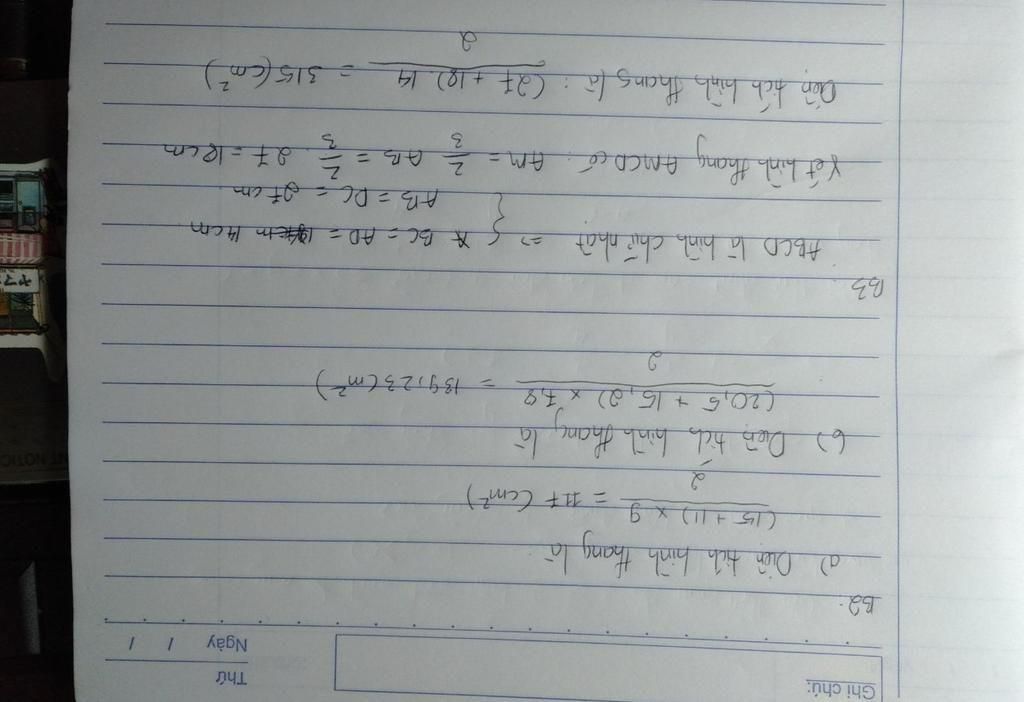 Ghi chú:
Thứ
Ngày / /
B2:
a) Diện tích hình thang là
(15 + 11) x 9
= 117 (cm²)
2
b) Diện tích hình thang là
(20,5 + 15,2) x 7,8
= 139,23 (cm²)
2
B3
ABCD là hình chữ nhật => { BC = AD = 14 cm
AB = DC = 27 cm
Xét hình thang AMCD có: AM = 2/3 AB = 2/3 . 27 = 18 cm
Diện tích hình thang là: (27 + 18) . 14 = 315 (cm²)
2